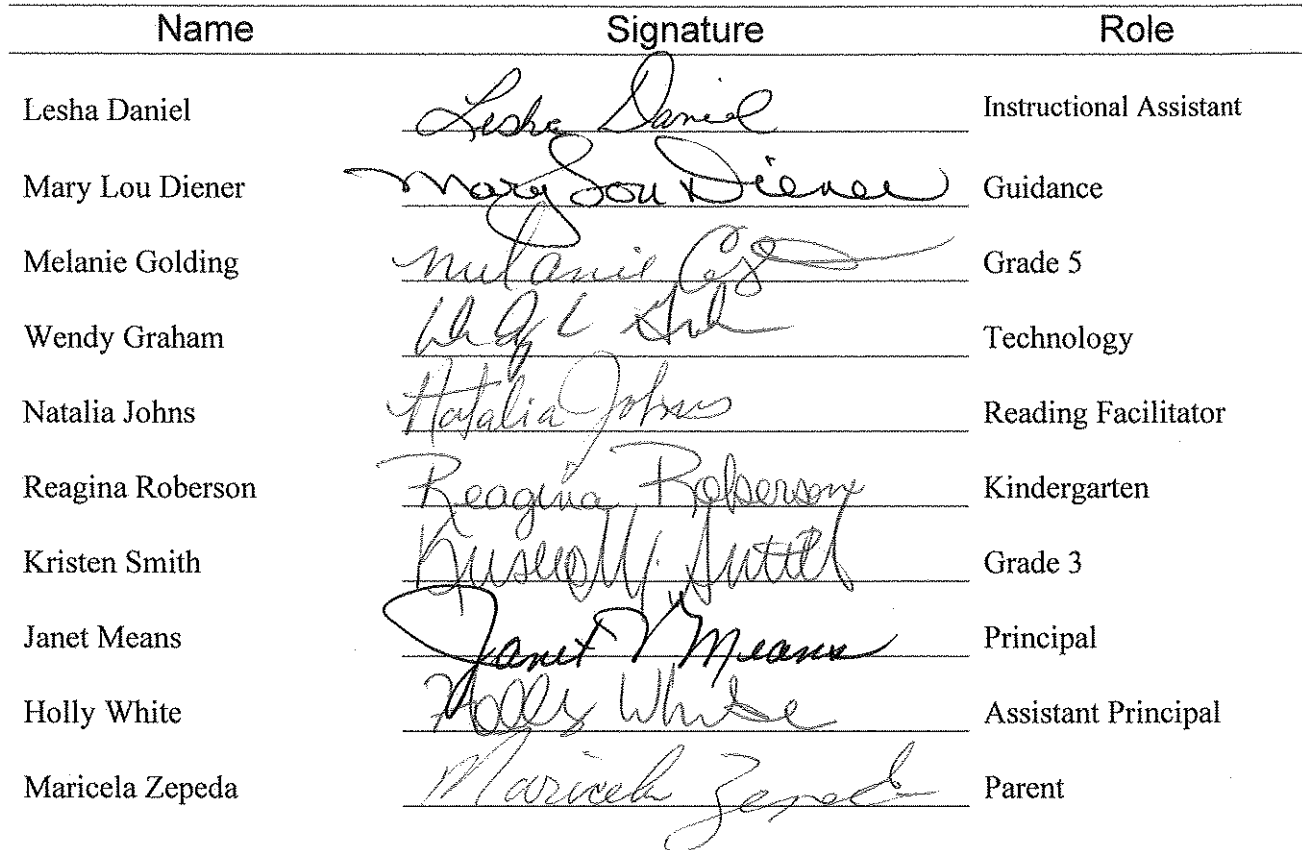 Name Signature Role
Lesha Daniel Lesha Daniel Instructional Assistant
Mary Lou Diener Mary Lou Diener Guidance
Melanie Golding Melanie Grade 5
Wendy Graham Technology
Natalia Johns Natalia Johns Reading Facilitator
Reagina Roberson Reagina Roberson Kindergarten
Kristen Smith Grade 3
Janet Means Janet Means Principal
Holly White Holly White Assistant Principal
Maricela Zepeda Maricela Zepeda Parent